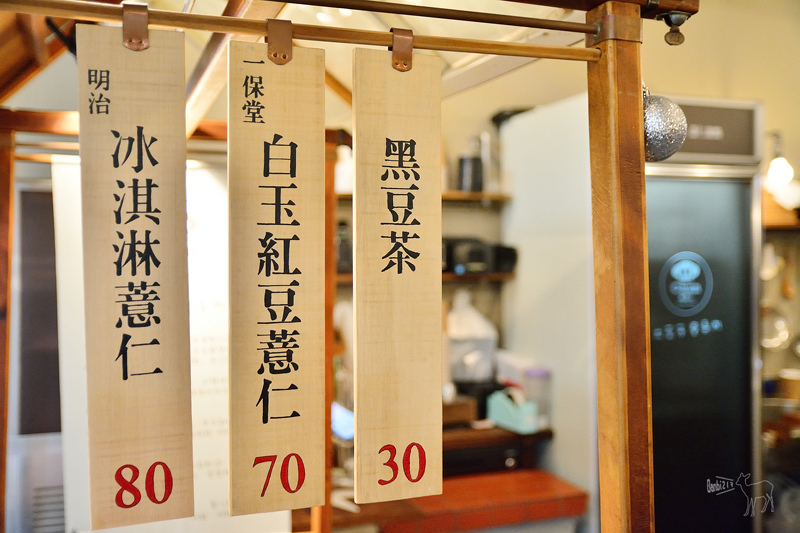 明治
冰淇淋薏仁
80
一保堂
白玉紅豆薏仁
70
黑豆茶
30
Bambi214